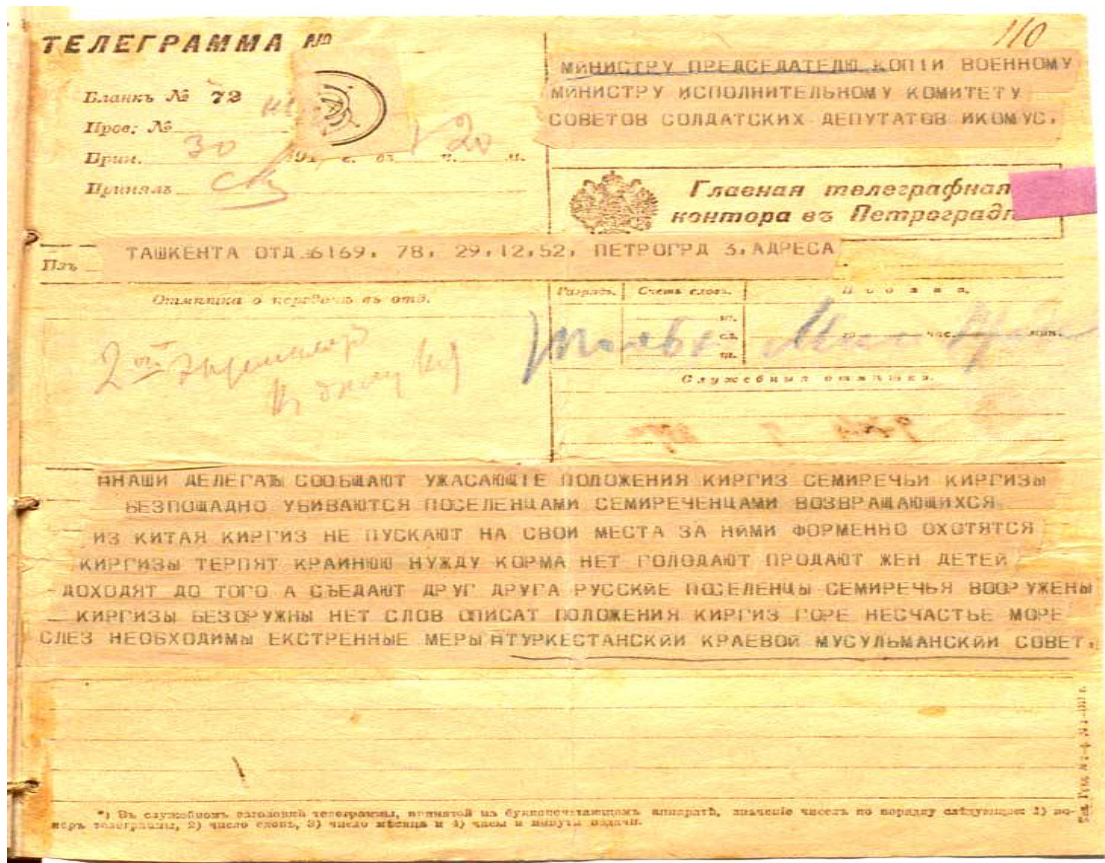 110
ТЕЛЕГРАММА №
МИНИСТРУ ПРЕДСЕДАТЕЛЮ КОПІИ ВОЕННОМУ
МИНИСТРУ ИСПОЛНИТЕЛЬНОМУ КОМИТЕТУ
СОВЕТОВ СОЛДАТСКИХ ДЕПУТАТОВ ИКОМУС.
Бланкъ № 72
Пров: №
Прин. 30 191 г. въ 1 ч. 20 м.
Принялъ
Главная телеграфная
контора въ Петроградѣ
Изъ ТАШКЕНТА ОТД 6169, 78, 29,12,52, ПЕТРОГРД 3,АДРЕСА
Отмѣтка о передачѣ въ отд.
Разрядъ. Счетъ словъ. Подана.
сл. час. мин.
2ой экземпляр
Служебныя отмѣтки.
ННАШИ ДЕЛЕГАТЫ СООБЩАЮТ УЖАСАЮЩІЕ ПОЛОЖЕНИЯ КИРГИЗ СЕМИРЕЧЬИ КИРГИЗЫ
БЕЗПОЩАДНО УБИВАЮТСЯ ПОСЕЛЕНЦАМИ СЕМИРЕЧЕНЦАМИ ВОЗВРАЩАЮЩИХСЯ
ИЗ КИТАЯ КИРГИЗ НЕ ПУСКАЮТ НА СВОИ МЕСТА ЗА НИМИ ФОРМЕННО ОХОТЯТСЯ
КИРГИЗЫ ТЕРПЯТ КРАИНЮЮ НУЖДУ КОРМА НЕТ ГОЛОДАЮТ ПРОДАЮТ ЖЕН ДЕТЕЙ
ДОХОДЯТ ДО ТОГО А СЪЕДАЮТ ДРУГ ДРУГА РУССКИЕ ПОСЕЛЕНЦЫ СЕМИРЕЧЬЯ ВООРУЖЕНЫ
КИРГИЗЫ БЕЗОРУЖНЫ НЕТ СЛОВ ОПИСАТ ПОЛОЖЕНИЯ КИРГИЗ ГОРЕ НЕСЧАСТЬЕ МОРЕ
СЛЕЗ НЕОБХОДИМЫ ЕКСТРЕННЫЕ МЕРЫ НТУРКЕСТАНСКЙИ КРАЕВОЙ МУСУЛЬМАНСКЙИ СОВЕТ.
*) Въ служебномъ заголовкѣ телеграммы, принятой на буквопечатающемъ аппаратѣ, значеніе чиселъ по порядку слѣдующее: 1) но-
меръ телеграммы, 2) число словъ, 3) число мѣсяца и 4) часы и минуты подачи.